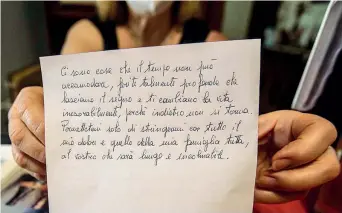 Ci sono cose che il tempo non può
accomodare, feriti talmenti profonde che
lasciano il segno e ti cambiano la vita
inesorabilmente, perché indietro non si torna.
Permettetemi solo di stringermi con tutto il
mio dolore e quello della mia famiglia tutta,
al vostro che sarà lungo e incolmabile.